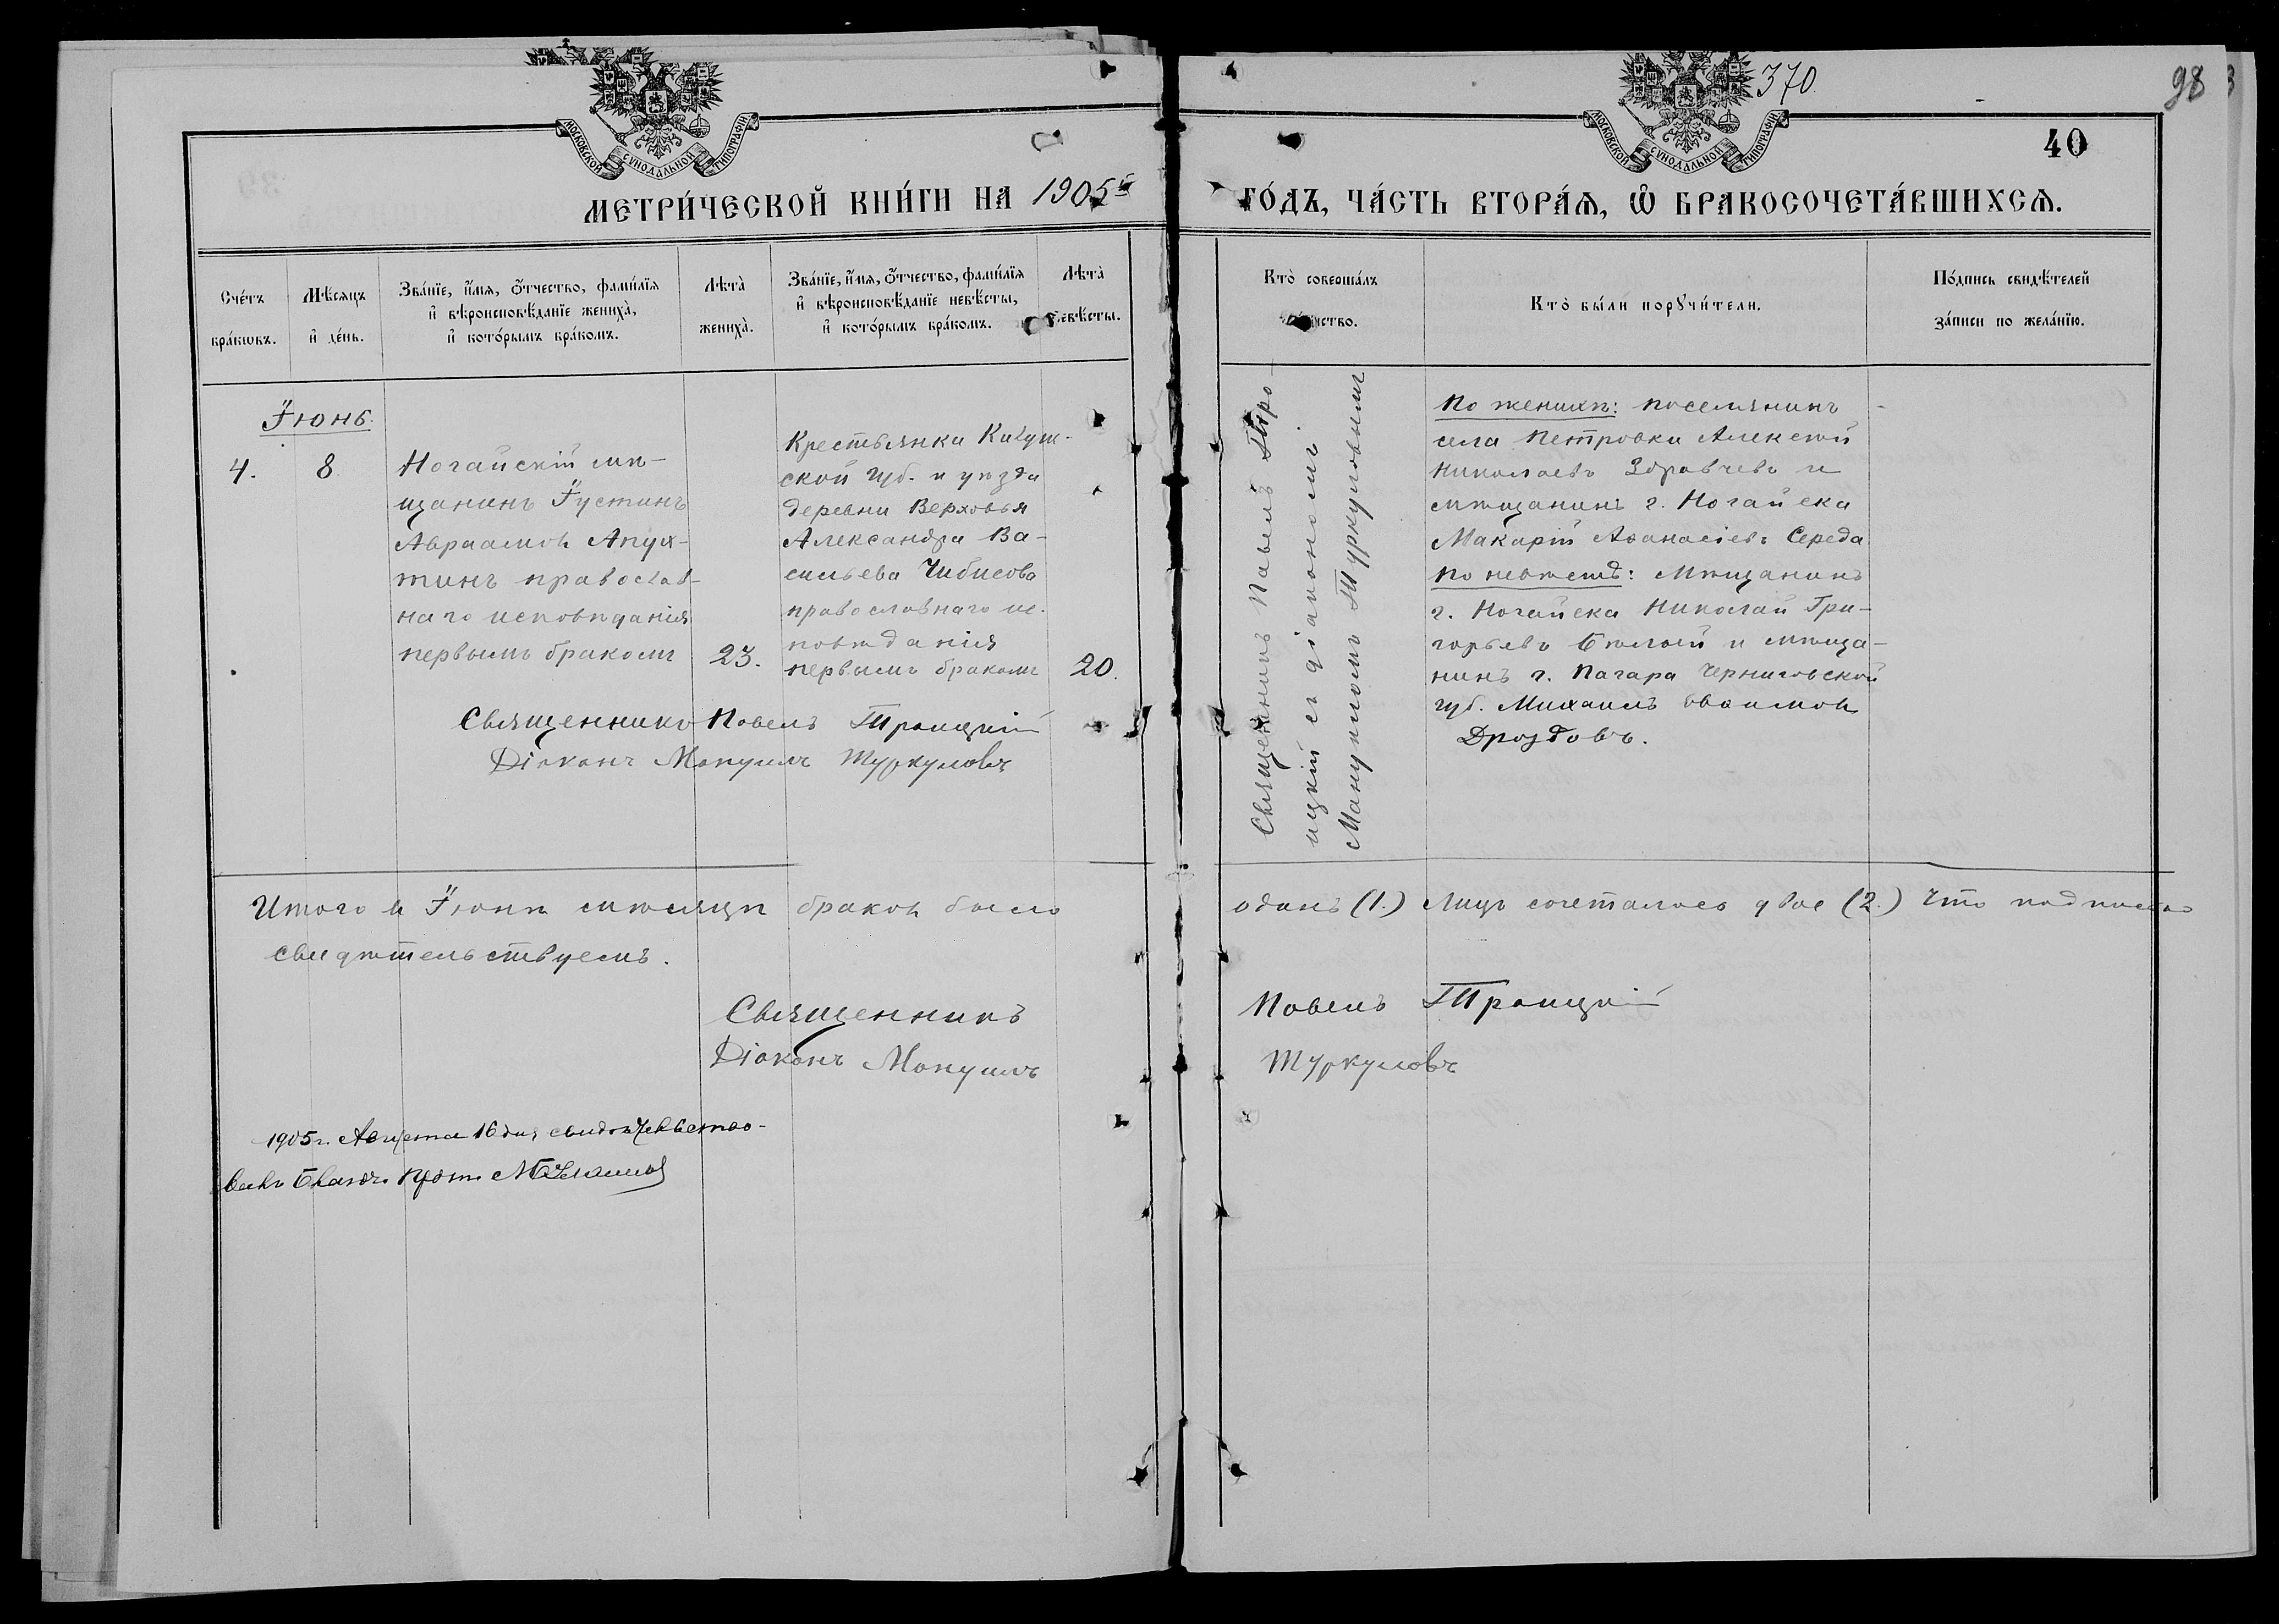 370
98
40
МОСКОВСКОЙ СѴНОДАЛЬНОЙ ТИПОГРАФІИ
МОСКОВСКОЙ СѴНОДАЛЬНОЙ ТИПОГРАФІИ
МЕТРИ́ЧЕСКОЙ КНИ́ГИ НА 1905й
ГО́ДЪ, ЧА́СТЬ ВТОРА́Ѧ, Ѽ БРАКОСОЧЕТА́ВШИХСѦ.
Сче́тъ
бра́кωвъ.
Мѣ́сяцъ
и҆ де́нь.
Зва́нїе, и҆́мя, ѻ҆́тчество, фами́лїя
и҆ вѣроисповѣ́данїе жениха̀,
и҆ кото́рымъ бра́комъ.
Лѣта̀
жениха̀.
Зва́нїе, и҆́мя, ѻ҆́тчество, фами́лїя
и҆ вѣроисповѣ́данїе невѣ́сты,
и҆ кото́рымъ бра́комъ.
Лѣта̀
невѣ́сты.
Кто̀ соверша́лъ
та́инство.
Кто̀ бы́ли порꙋчи́тели.
По́дпись свидѣ́телей
за́писи по жела́нїю.
Іюнь.
4.
8.
Ногайскій мѣ-
щанинъ Іустинъ
Авраамов Апух-
тинъ православ-
наго исповѣданія
первымъ бракомъ
23.
Крестьянка Калуж-
ской губ. и уѣзда
деревни Верховья
Александра Ва-
сильева Чибисова
православнаго ис-
повѣданія
первымъ бракомъ
20.
Священникъ Павелъ Трои-
ицкій съ діакономъ
Мануиломъ Туркуловымъ
По женихѣ: поселянинъ
села Петровки Алексѣй
Николаевъ Здравчевъ и
мѣщанинъ г. Ногайска
Макарій Аѳанасіевъ Середа
По невѣстѣ: мѣщанинъ
г. Ногайска Николай Гри-
горьевъ Бѣлый и мѣща-
нинъ г. Пагара Черниговской
губ. Михаилъ
Дроздовъ.
Священникъ Павелъ Троицкій
Діаконъ Мануилъ Туркуловъ
Итого в Іюнѣ мѣсяцѣ браков было одинъ (1.) Лицъ сочеталось двое (2.) Что подписью
свидѣтельствуемъ.
Священникъ Павелъ Троицкій
Діаконъ Мануилъ Туркуловъ
1905 г. Августа 16 дня свидѣтельство-
валъ Благоч. Прот.